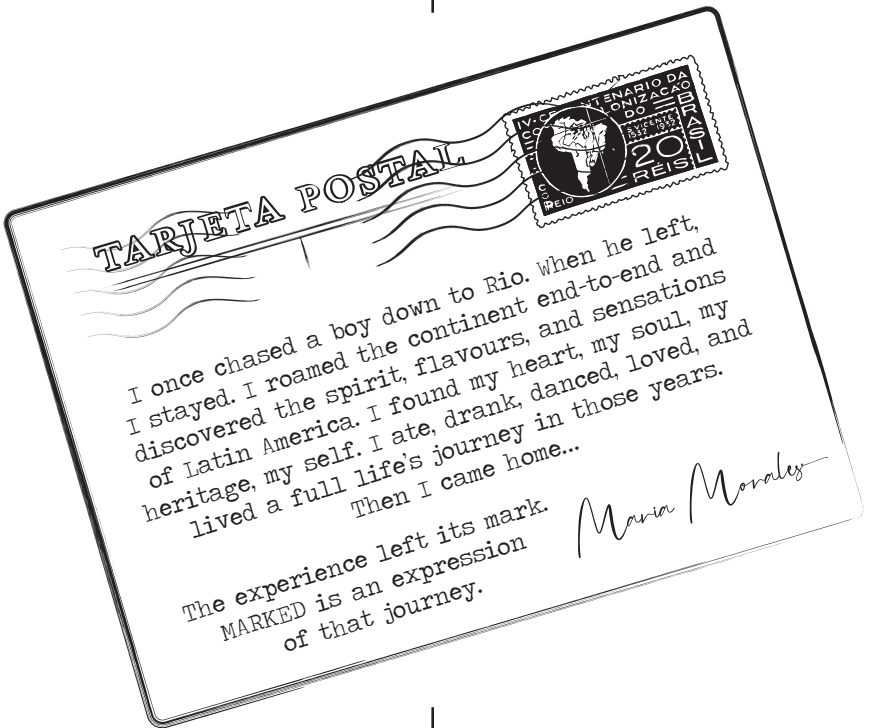 TARJETA POSTAL
IV. CENTENARIO DA
COLONIZACAO
DO BRASIL
S. VICENTE
1532 1932
20
RÉIS
CORREIO
I once chased a boy down to Rio. When he left,
I stayed. I roamed the continent end-to-end and
discovered the spirit, flavours, and sensations
of Latin America. I found my heart, my soul, my
heritage, my self. I ate, drank, danced, loved, and
lived a full life's journey in those years.
Then I came home...
Maria Morales
The experience left its mark.
MARKED is an expression
of that journey.